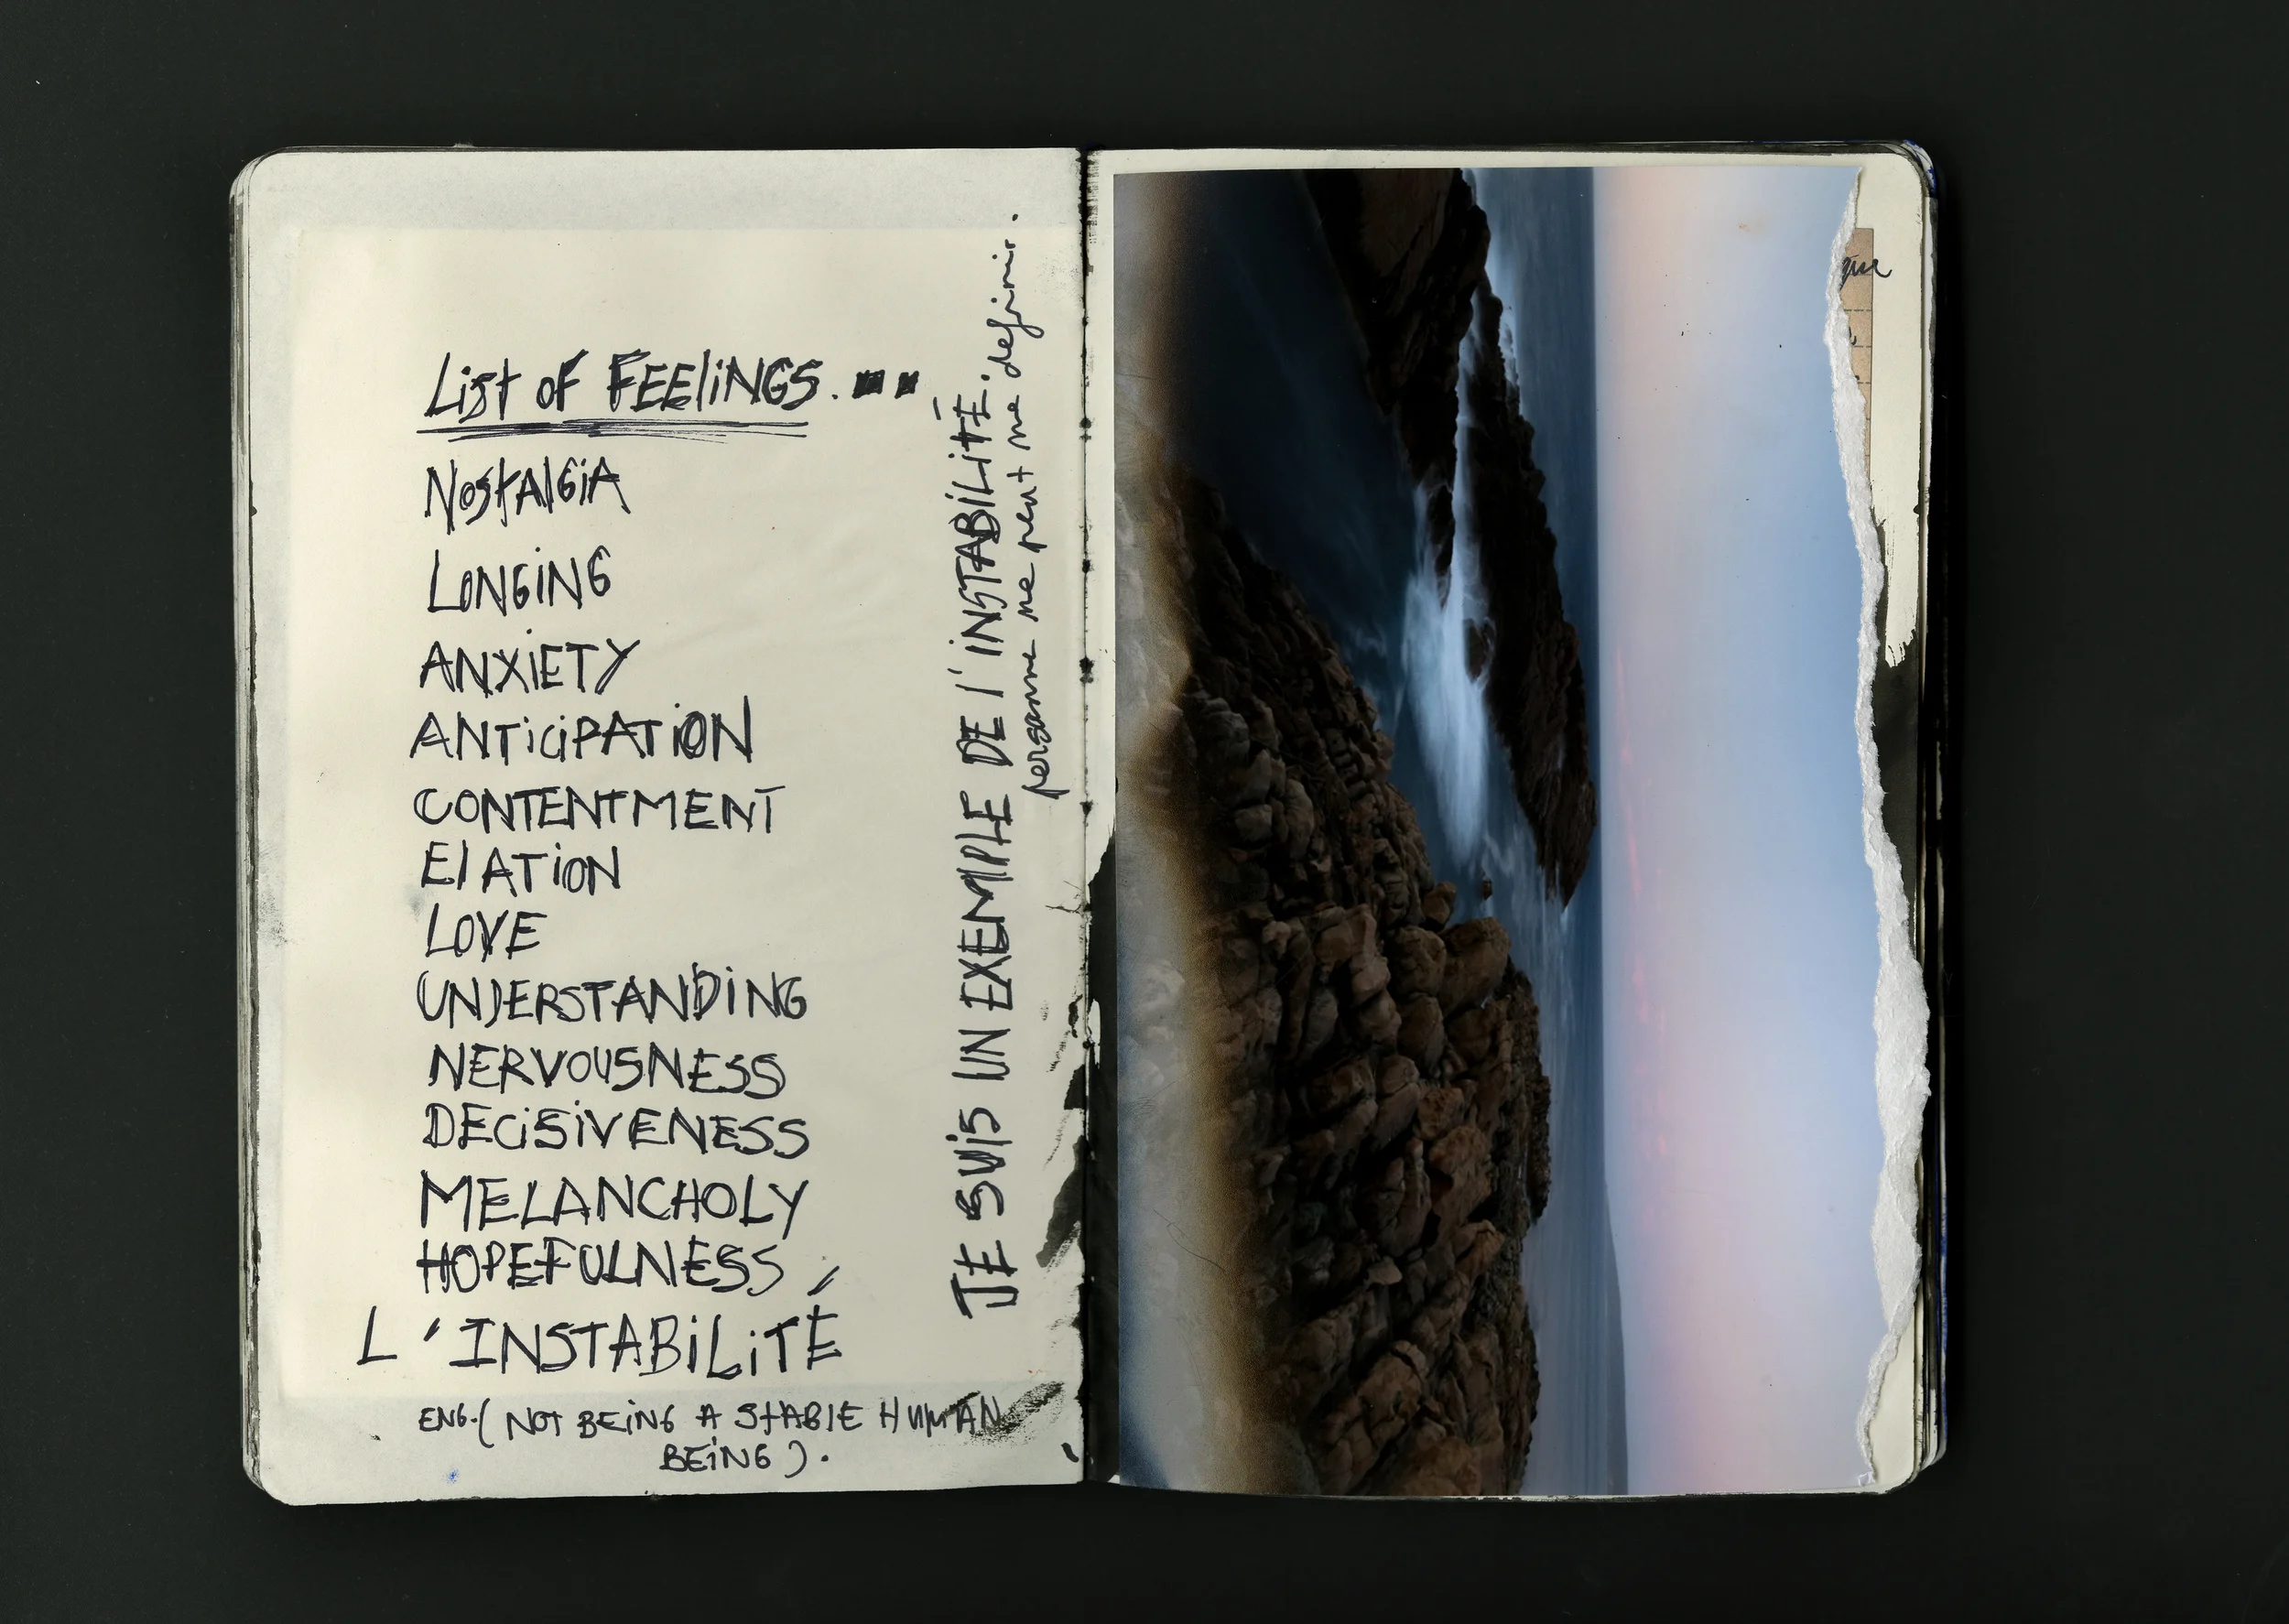 List of FEElINGS.
NOSTAlGiA
LONGiNG
ANXiETY
ANTiciPATiON
CONTENTMENT
ElATiON
LOVE
UNDERSTANDiNG
NERVOUSNESS
DECiSiVENESS
MELANCHOLY
HOPEFULNESS
L'INSTABiLiTÉ
ENG. ( NOT BEiNG A STABlE HUMAN
BEiNG ).
JE SUiS UN EXEMPLE DE l'iNSTABiLiTÉ.
personne ne peut me definir.
que